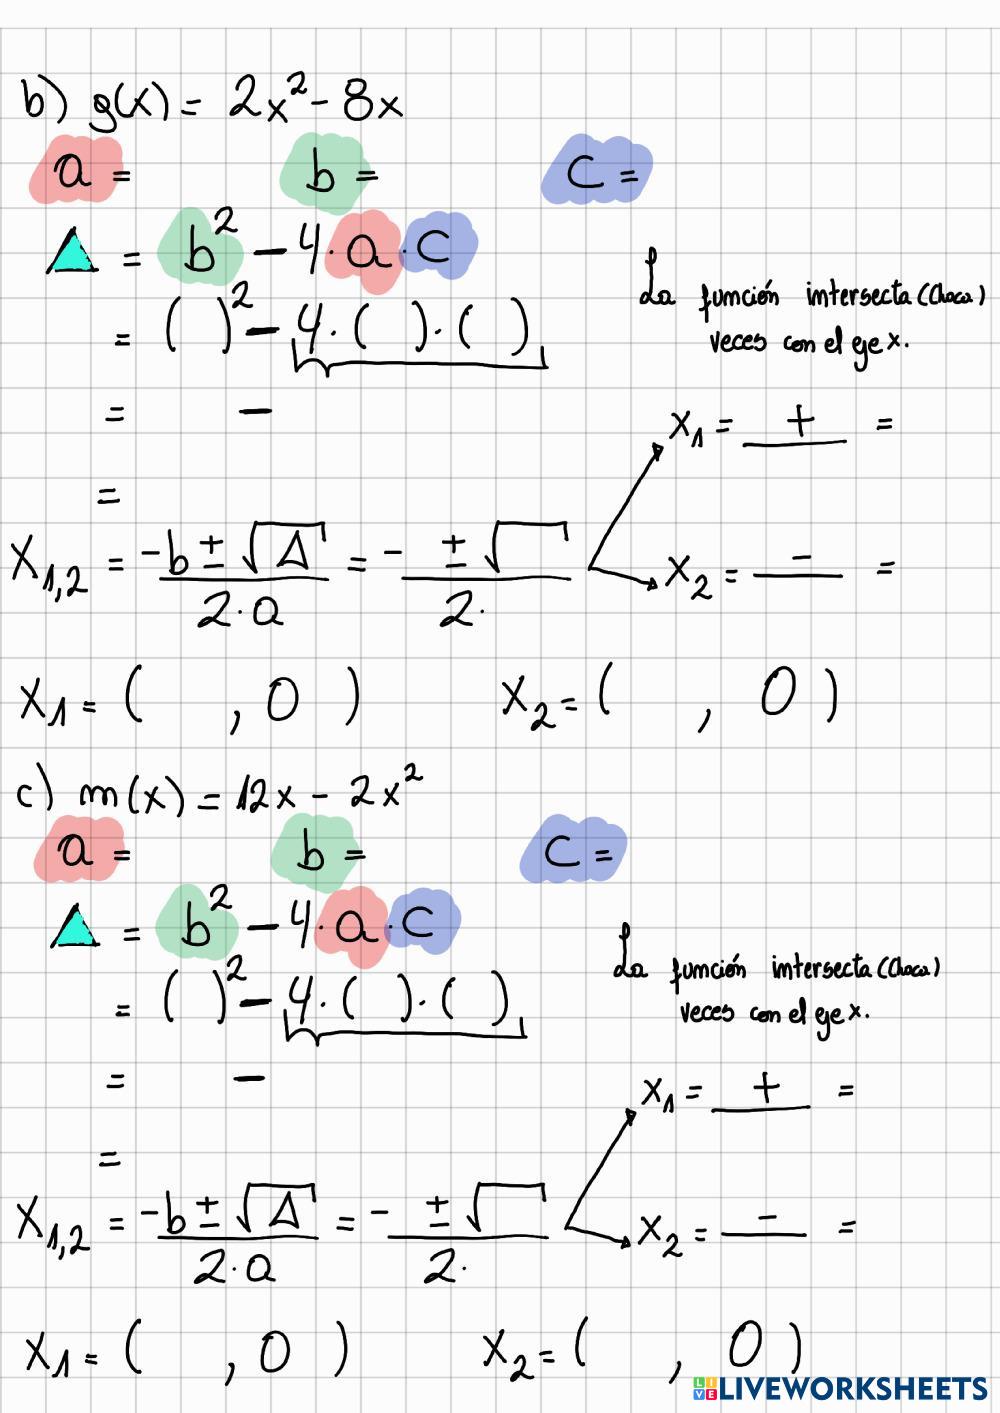 b) g(x) = 2x² - 8x
a = b = c =
▲ = b² - 4·a·c
= ( )² - 4·( )·( )
La función intersecta (choca)
veces con el eje x.
= -
=
x₁,₂ = -b ± √Δ / 2·a = - ± √ / 2·
x₁ = + =
x₂ = - =
x₁ = ( , 0 ) x₂ = ( , 0 )
c) m(x) = 12x - 2x²
a = b = c =
▲ = b² - 4·a·c
= ( )² - 4·( )·( )
La función intersecta (choca)
veces con el eje x.
= -
=
x₁,₂ = -b ± √Δ / 2·a = - ± √ / 2·
x₁ = + =
x₂ = - =
x₁ = ( , 0 ) x₂ = ( , 0 )
LIVEWORKSHEETS